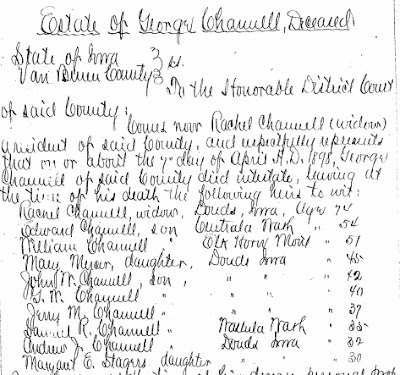 Estate of George Channell, Deceased
State of Iowa } ss.
Van Buren County }
In the Honorable District Court
of said County:
Comes now Rachel Channell (widow)
a resident of said County, and respectfully represents
that on or about the 7 day of April A.D. 1898, George
Channell of said County died intestate, having at
the time of his death the following heirs to wit:
Rachel Channell, widow, Douds, Iowa, Age 74
Edward Channell, son Centralia Wash " 54
William Channell " Elk Horn Mont " 51
Mary Myer, daughter, Douds Iowa " 45
John W. Channell, son, " " " 42
G. W. Channell " " " " 40
Jerry M. Channell " " " " 37
Samuel R. Channell " Wash " 35
Andrew J. Channell " Douds Iowa " 32
Margaret E. Stagers, daughter " " " 30